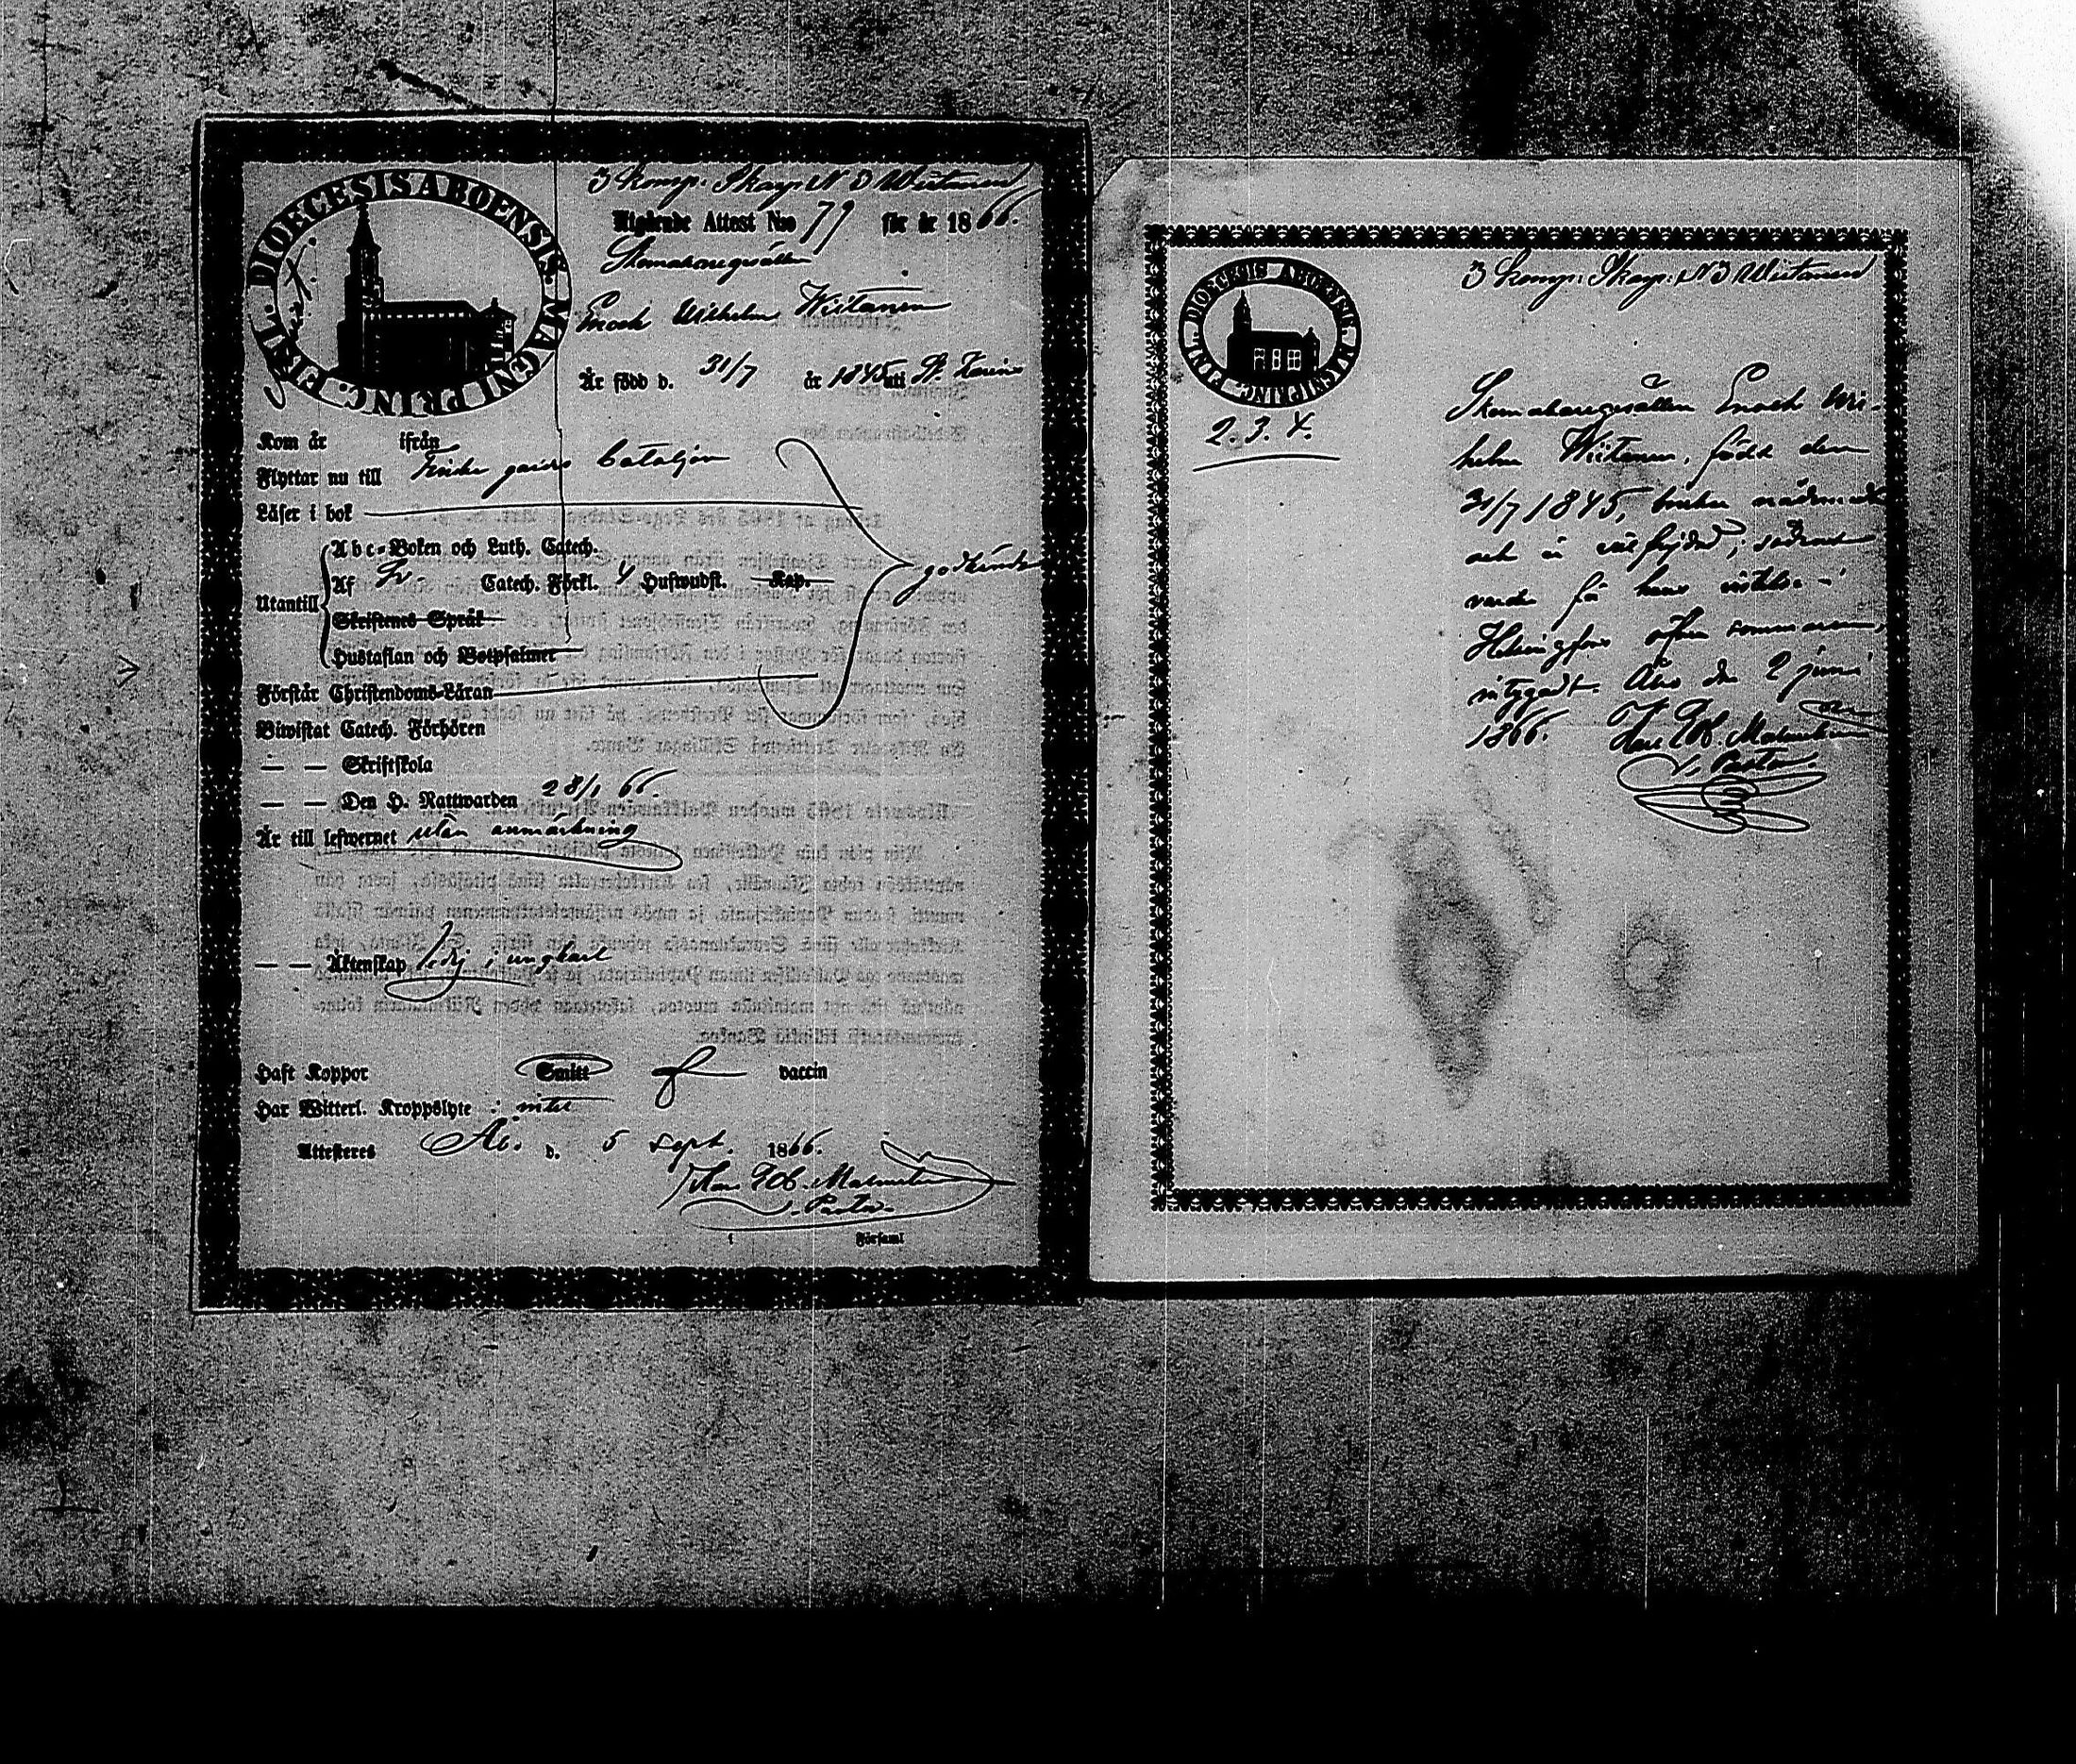 DIOECESIS ABOENSIS. MAGNI PRINC. FINL.
3 komp. Skarp. N 3 Wiitanen
Utgående Attest N:o 79 för år 1866.
Skomakaregesällen
Enoch Wilhelm Wiitanen
Är född d. 31/7 år 1845 uti St. Karins
Kom år ifrån
Flyttar nu till Finska gardes bataljon
Läser i bok
Abc-Boken och Luth. Catech.
Utantill
Af Sv. Catech. Förkl. 4 Hufwudst. Kap.
Skriftenes Språk
Hustaflan och Botpsalmer
godkände
Förstår Christendoms-Läran
Biwistat Catech. Förhören
— — Skriftskola
— — Den H. Nattwarden 28/1 66.
Är till lefwernet utan anmärkning
— — Äktenskap ledig; ungkarl
Haft Koppor Smitt vaccin
Har Witterl. Kroppslyte: intet
Attesteras Åbo. d. 5 sept. 1866.
v. Pastor.
i Församl
DIOECESIS ABOENSIS. MAGNI PRINC. FINL.
3 komp. Skarp. N 3 Wiitanen
2. 3. 4.
Skomakaregesällen Enoch Wil-
helm Wiitanen, född den
31/7 1845, brukar nådemedl
och är väl frejdad;
varder för hans vistelse i
Helsingfors öfver sommaren,
intygadt. Åbo den 2 juni
1866.
v. Pastor.